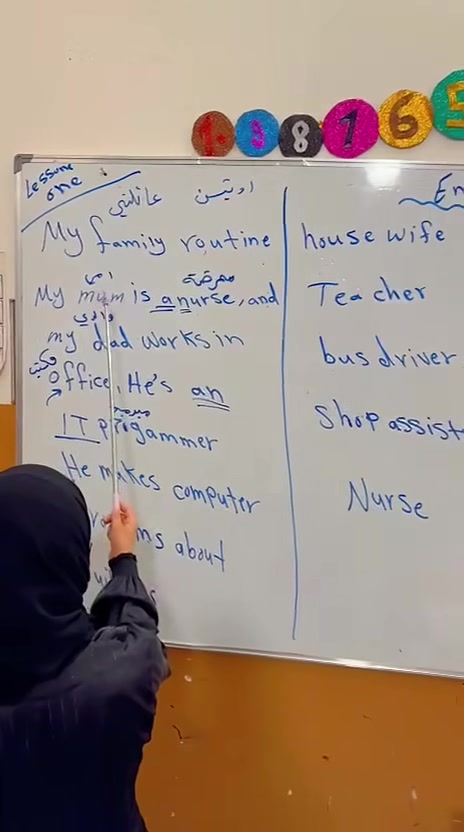 10 9 8 7 6 5
Lessone one
روتين عائلتي
My family routine
امي ممرضة
My mum is a nurse, and
والدي
my dad works in
مكتب
office, He's an
مبرمج
IT progammer
He makes computer
ms about
En
house wife
Teacher
bus driver
Shop assist
Nurse